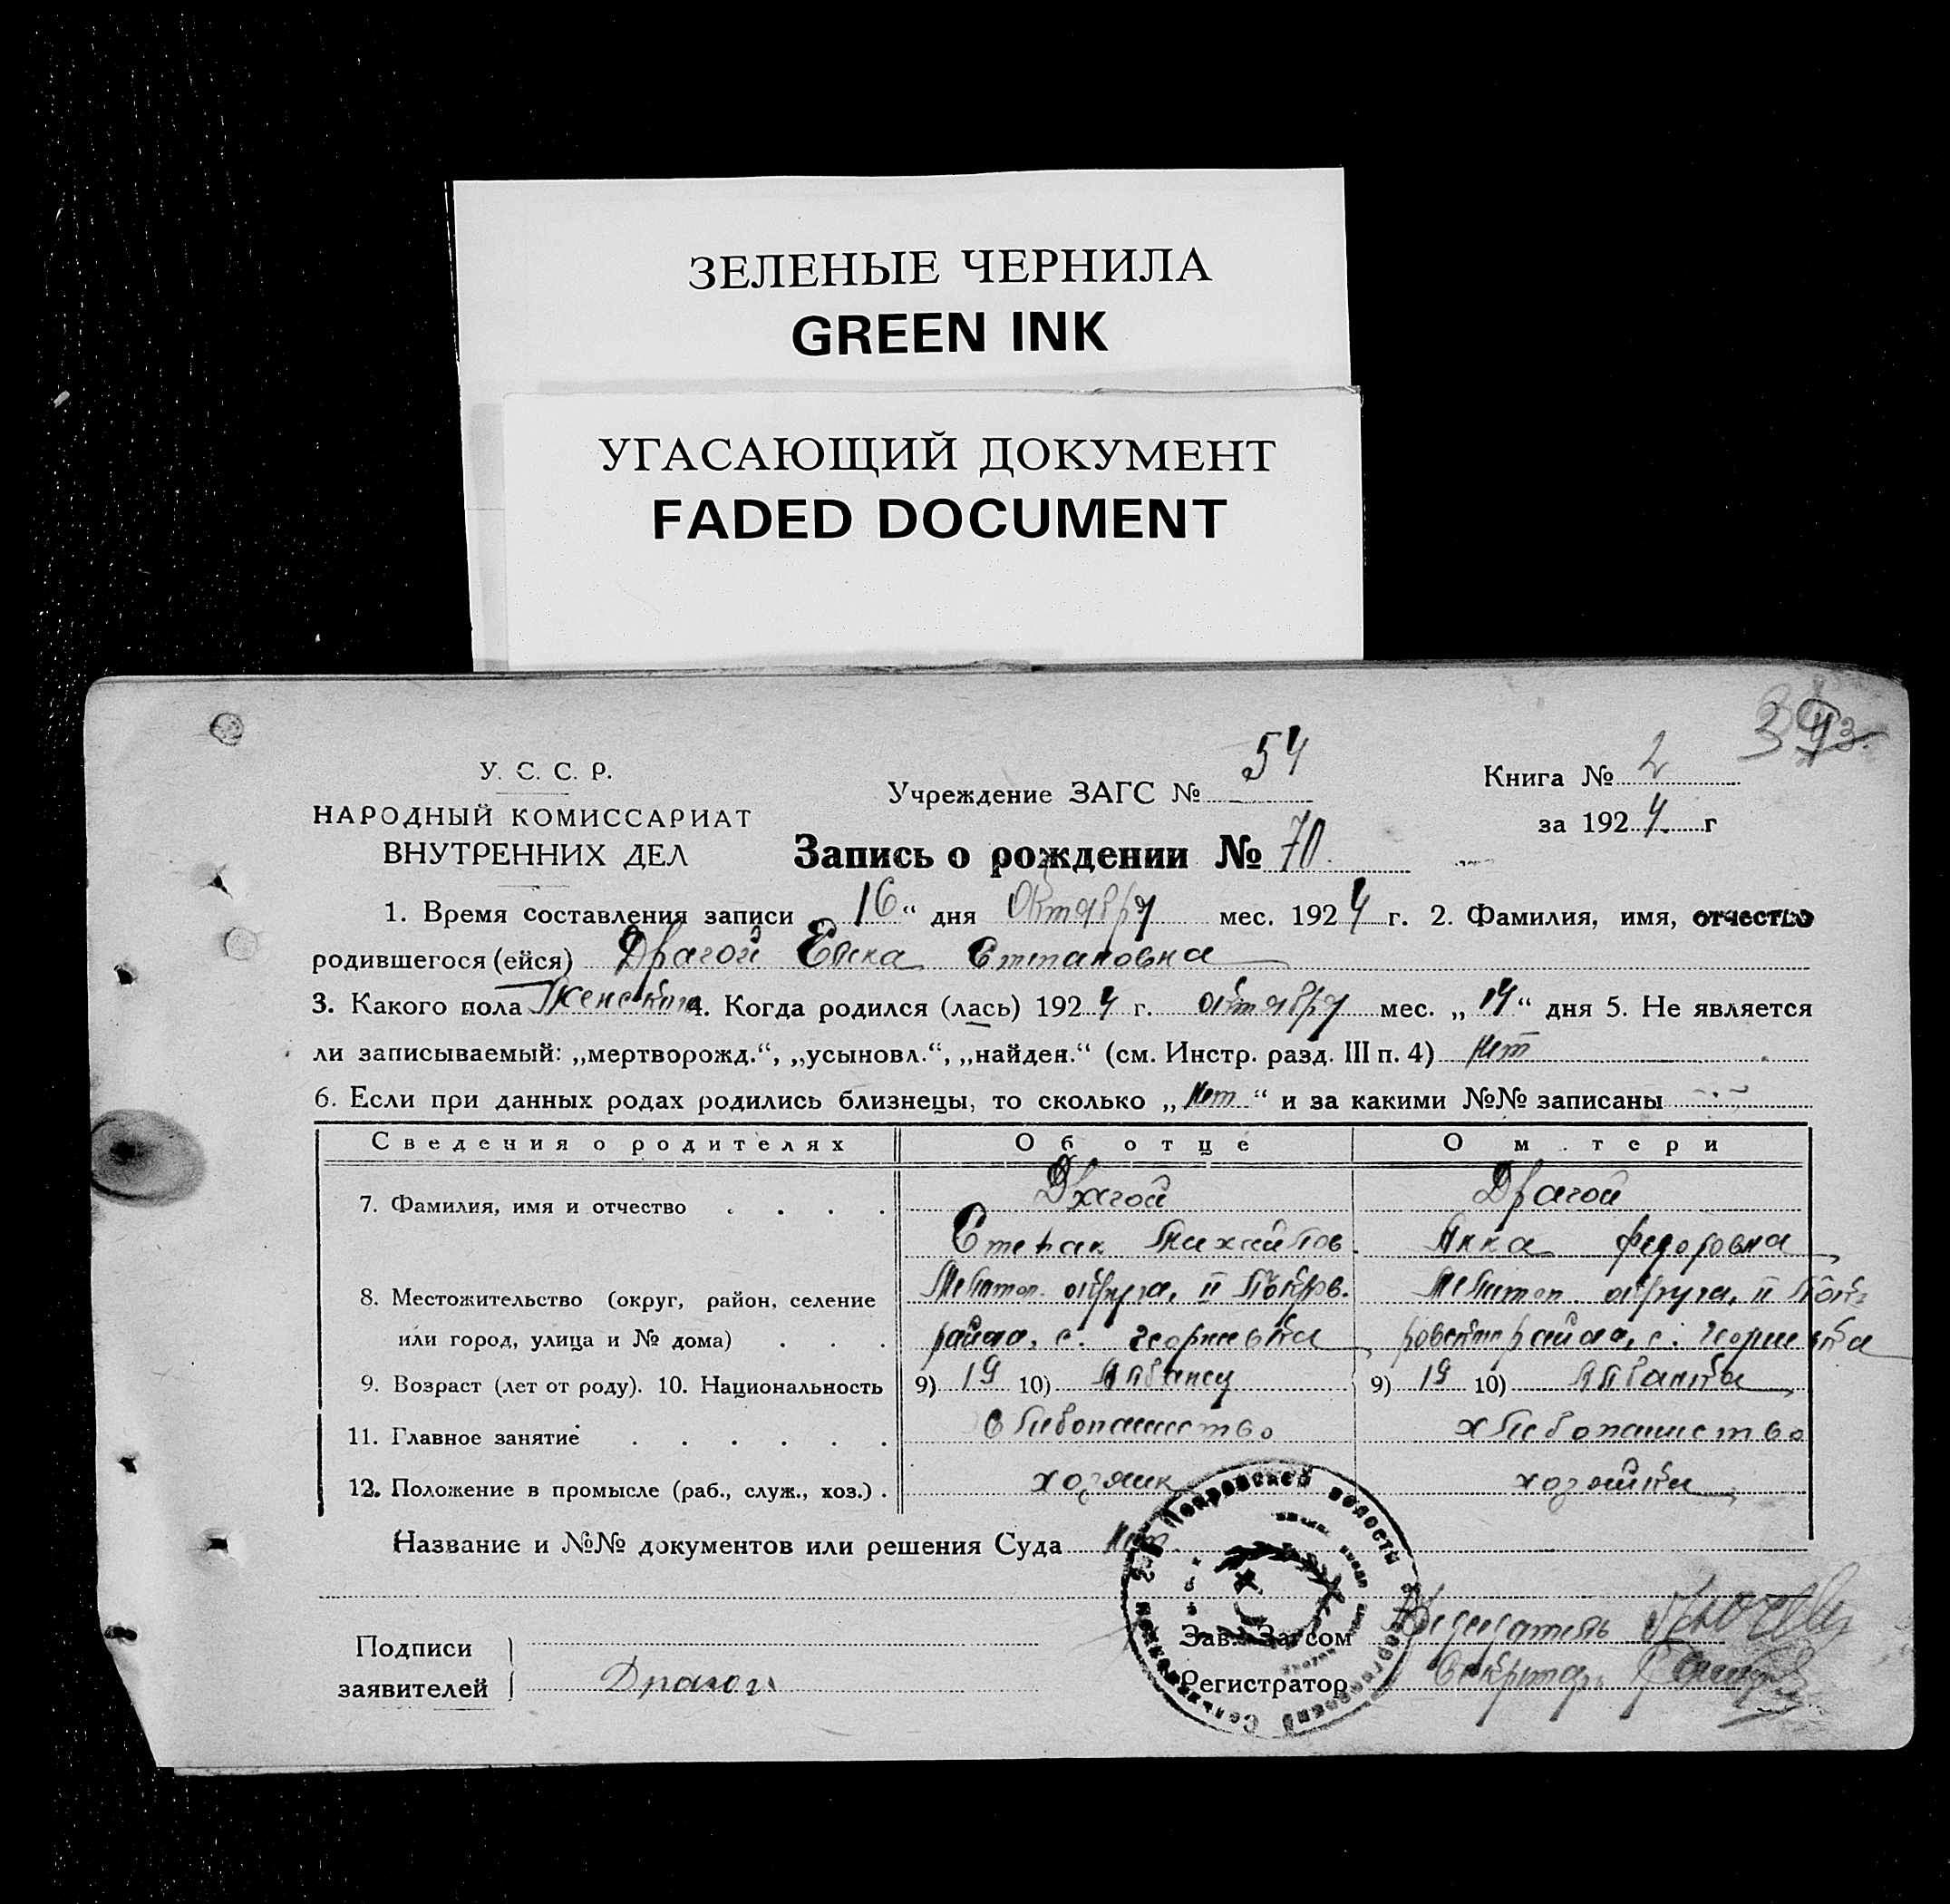 ЗЕЛЕНЫЕ ЧЕРНИЛА
GREEN INK
УГАСАЮЩИЙ ДОКУМЕНТ
FADED DOCUMENT
У. С. С. Р.
НАРОДНЫЙ КОМИССАРИАТ
ВНУТРЕННИХ ДЕЛ
Учреждение ЗАГС № 54
Книга № 2
за 1924 г
Запись о рождении № 70.
1. Время составления записи 16“ дня Октября мес. 1924 г. 2. Фамилия, имя, отчество
родившегося (ейся) Драгой Степановна
3. Какого пола Женского 4. Когда родился (лась) 1924 г. октября мес. „14“ дня 5. Не является
ли записываемый: „мертворожд.“, „усыновл.“, „найден.“ (см. Инстр. разд. III п. 4) нет
6. Если при данных родах родились близнецы, то сколько „нет“ и за какими №№ записаны
Сведения о родителях Об отце О м тери
7. Фамилия, имя и отчество Драгой Драгой
Степан Михайлов. Анна Федоровна
8. Местожительство (округ, район, селение Мелитоп. округа, II Покров. Мелитоп. округа, II Пок-
или город, улица и № дома) района, с. Георгиевка ровского района, с. Георгиевка
9. Возраст (лет от роду). 10. Национальность 9) 19 10) Албанец 9) 19 10) Албанка
11. Главное занятие хлебопашество хлебопашество
12. Положение в промысле (раб., служ., хоз.) . хозяин хозяйка
Название и №№ документов или решения Суда нет
Подписи
заявителей Драгой
Зав. Загсом Председатель
Регистратор Секретарь
2-й Покровской волости
Георгиевский Сельский